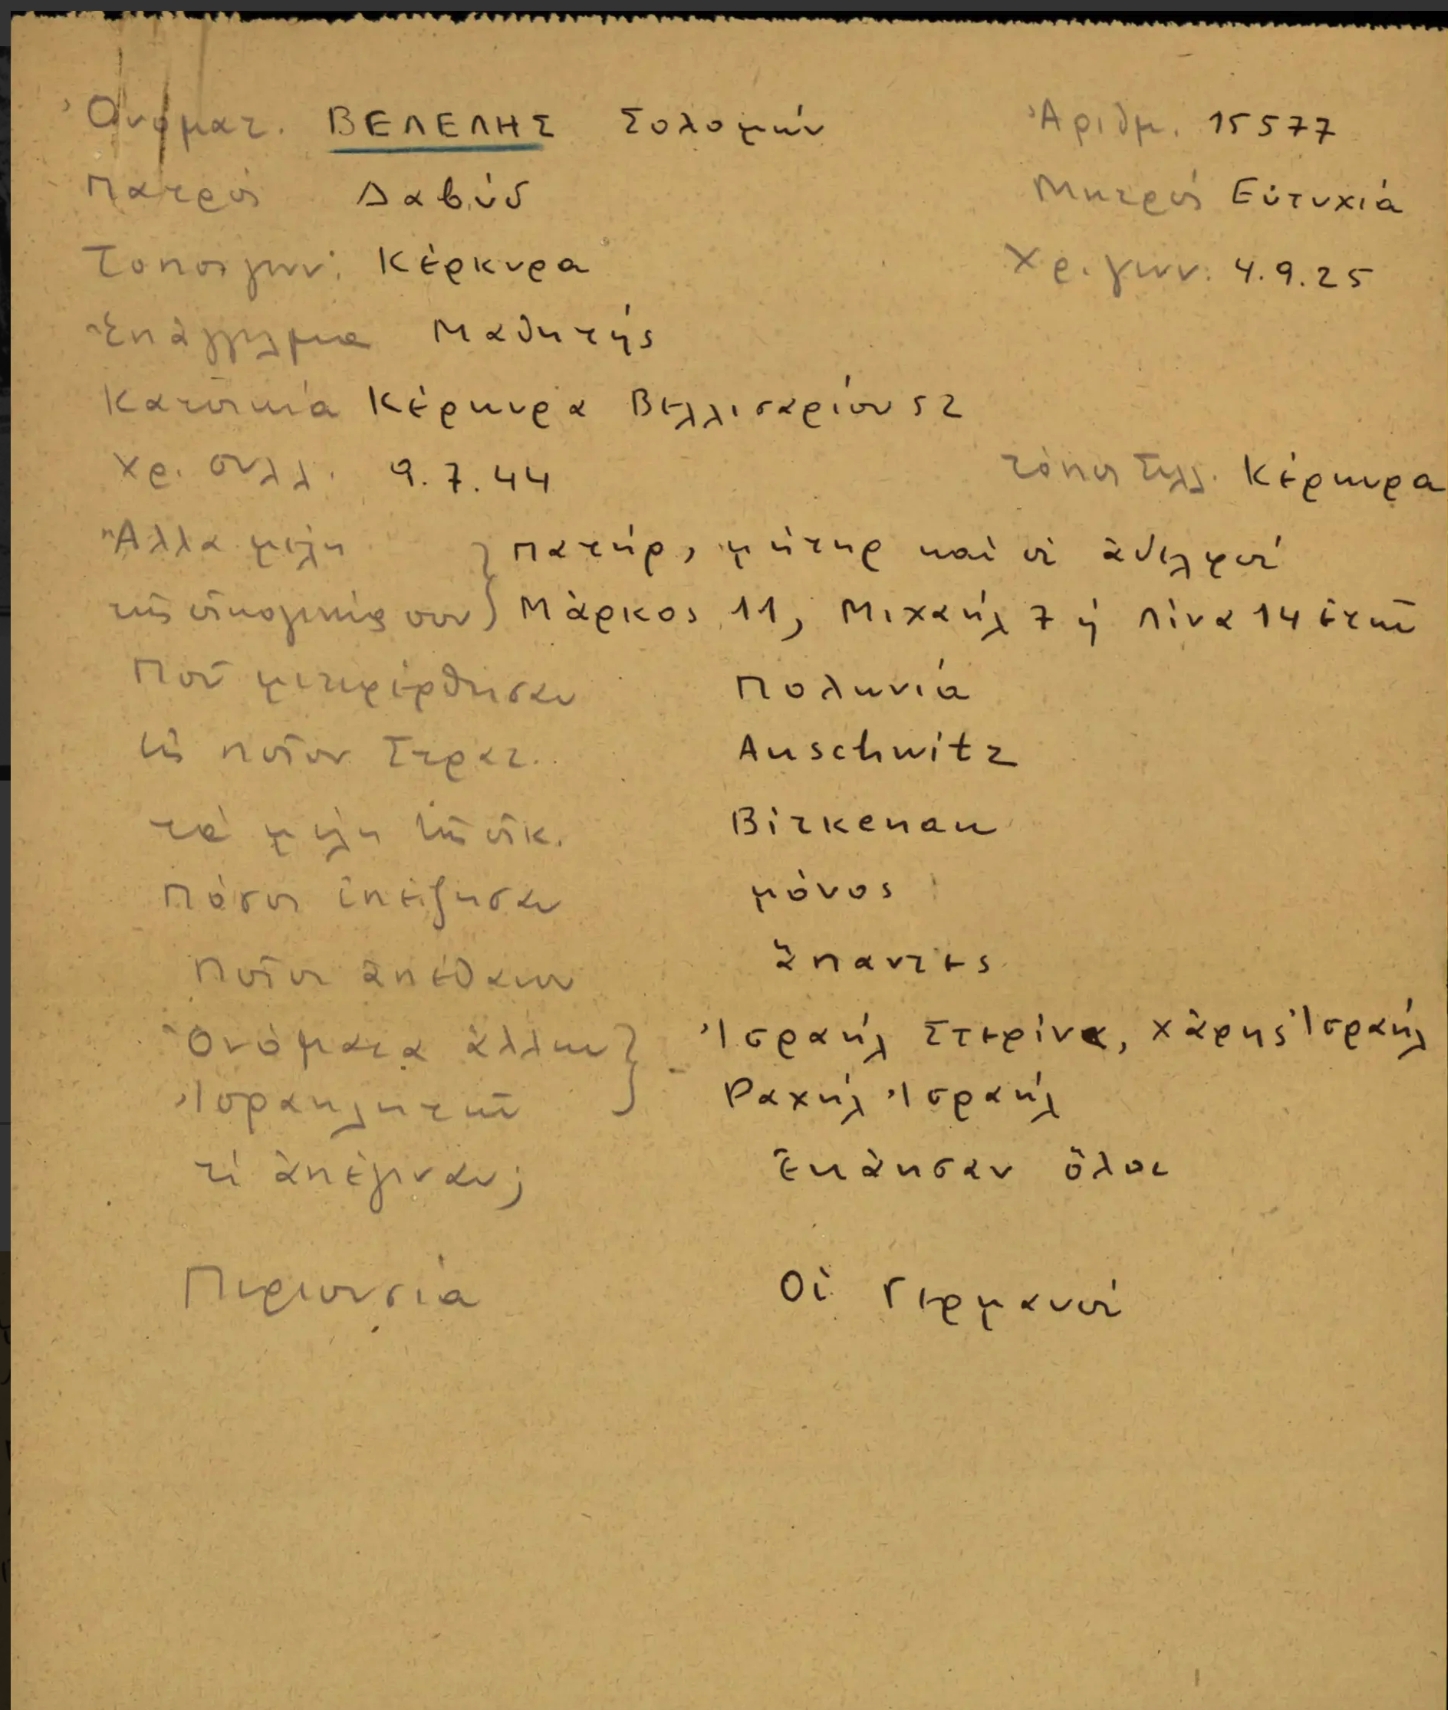 Ὀνοματ. ΒΕΛΕΛΗΣ Σολομών Ἀριθμ. 15577
Πατρός Δαβύδ Μητρός Εὐτυχιά
Τοπος γεν: Κέρκυρα Χρ. γεν. 4.9.25
Ἐπάγγελμα Μαθητής
Κατοικία Κέρκυρα Βελλισαρίου 52
Χρ. συλλ. 9.7.44 τόπος συλλ. Κέρκυρα
Ἄλλα μέλη } πατήρ, μήτηρ καί οἱ ἀδελφοί
τῆς οἰκογενείας σου } Μάρκος 11, Μιχαήλ 7 ἡ Λίνα 14 ἐτῶν
Ποῦ μετεφέρθησαν Πολωνία
εἰς ποῖον Στρατ. Auschwitz
τά μέλη τῆς οἰκ. Birkenau
Πόσοι ἐπέζησαν μόνος
Ποῖοι ἀπέθανον ἅπαντες
Ὀνόματα ἄλλων } Ἰσραήλ Στερίνα, Χάρης Ἰσραήλ
Ἰσραηλητῶν } Ραχήλ Ἰσραήλ
τί ἀπέγιναν; Ἐκάησαν ὅλοι
Περιουσία Οἱ Γερμανοί